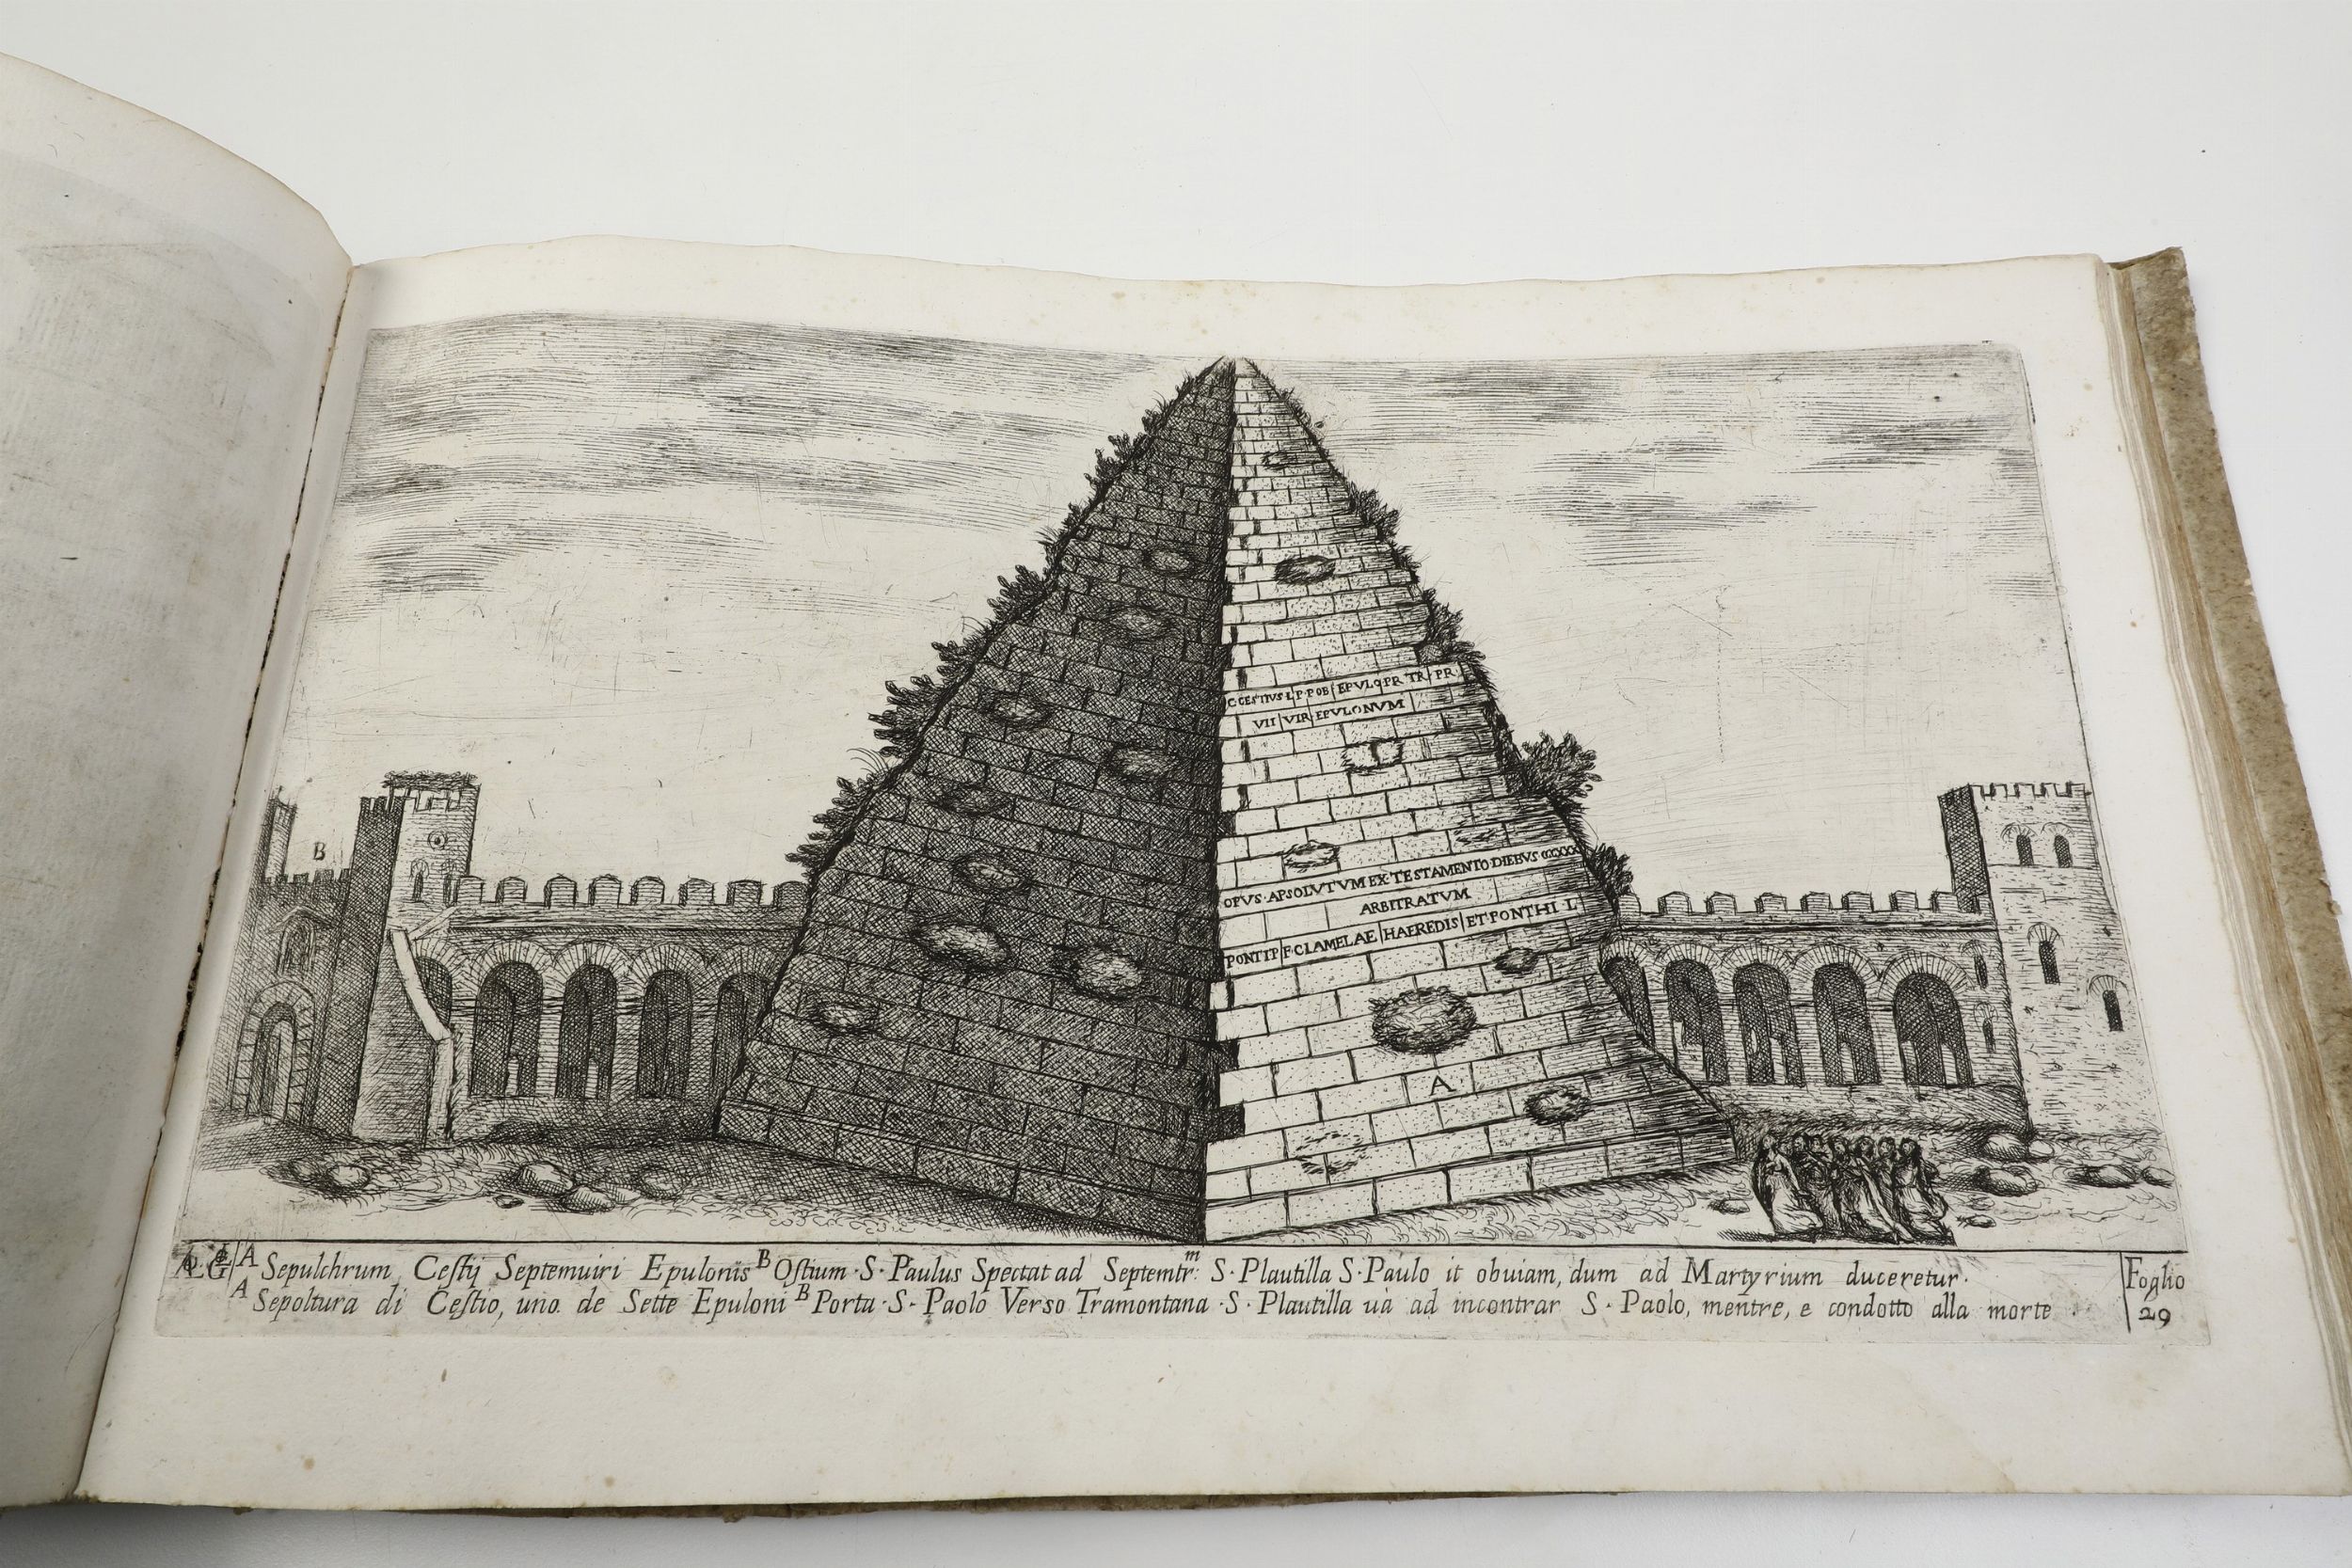 B
C CESTIVS L P POB EPVLO PR TR PR
VII VIR EPVLONVM
OPVS · APSOLVTVM EX · TESTAMENTO · DIEBVS CCCXXX
ARBITRATVM
PONTI P F CLAMELAE HAEREDIS ET PONTHI L
A
A Sepulchrum Cestij Septemuiri Epulonis B Ostium · S · Paulus Spectat ad Septemtr:m S · Plautilla S · Paulo it obuiam, dum ad Martyrium duceretur ·
A Sepoltura di Cestio, uno de Sette Epuloni B Porta · S · Paolo Verso Tramontana · S · Plautilla uà ad incontrar S · Paolo, mentre, e condotto alla morte ·
Foglio
29